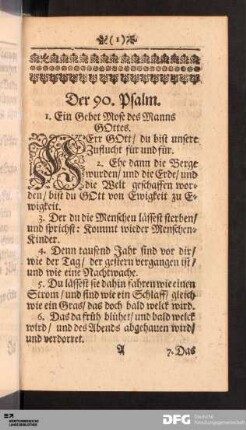 (1)
Der 90. Psalm.
1. Ein Gebet Mose des Manns
GOttes.
HErr GOtt/ du bist unsere
Zuflucht für und für.
2. Ehe dann die Berge
wurden/ und die Erde/ und
die Welt geschaffen wor-
den/ bist du GOtt von Ewigkeit zu E-
wigkeit.
3. Der du die Menschen lässest sterben/
und sprichst: Kommt wieder Menschen-
Kinder.
4. Denn tausend Jahr sind vor dir/
wie der Tag/ der gestern vergangen ist/
und wie eine Nachtwache.
5. Du lässest sie dahin fahren wie einen
Strom/ und sind wie ein Schlaff/ gleich
wie ein Gras/ das doch bald welck wird.
6. Das da früh blühet/ und bald welck
wird/ und des Abends abgehauen wird/
und verdorret.
A
7. Das
WÜRTTEMBERGISCHE
LANDESBIBLIOTHEK
DFG Deutsche
Forschungsgemeinschaft